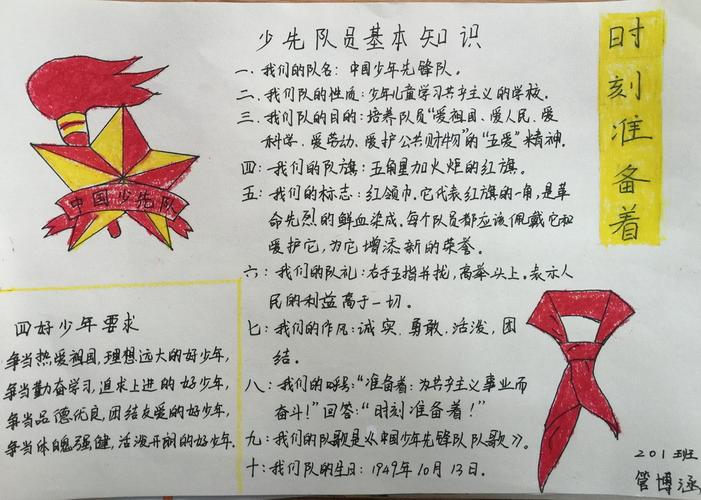 少先队员基本知识
一、我们的队名：中国少年先锋队。
二、我们队的性质：少年儿童学习共产主义的学校。
三、我们队的目的：培养队员“爱祖国、爱人民、爱
科学、爱劳动、爱护公共财物”的“五爱”精神。
四：我们的队旗：五角星加火炬的红旗。
五：我们的标志：红领巾。它代表红旗的一角，是革
命先烈的鲜血染成。每个队员都应该佩戴它和
爱护它，为它增添新的荣誉。
六：我们的队礼：右手五指并拢，高举头上。表示人
民的利益高于一切。
七：我们的作风：诚实、勇敢、活泼、团
结。
八：我们的呼号：“准备着：为共产主义事业而
奋斗！”回答：“时刻准备着！”
九：我们的队歌是《中国少年先锋队队歌》。
十：我们队的生日：1949年10月13日。
中国少先队
四好少年要求
争当热爱祖国，理想远大的好少年，
争当勤奋学习，追求上进的好少年，
争当品德优良，团结友爱的好少年，
争当体魄强健，活泼开朗的好少年.
时刻准备着
201班
管博涵